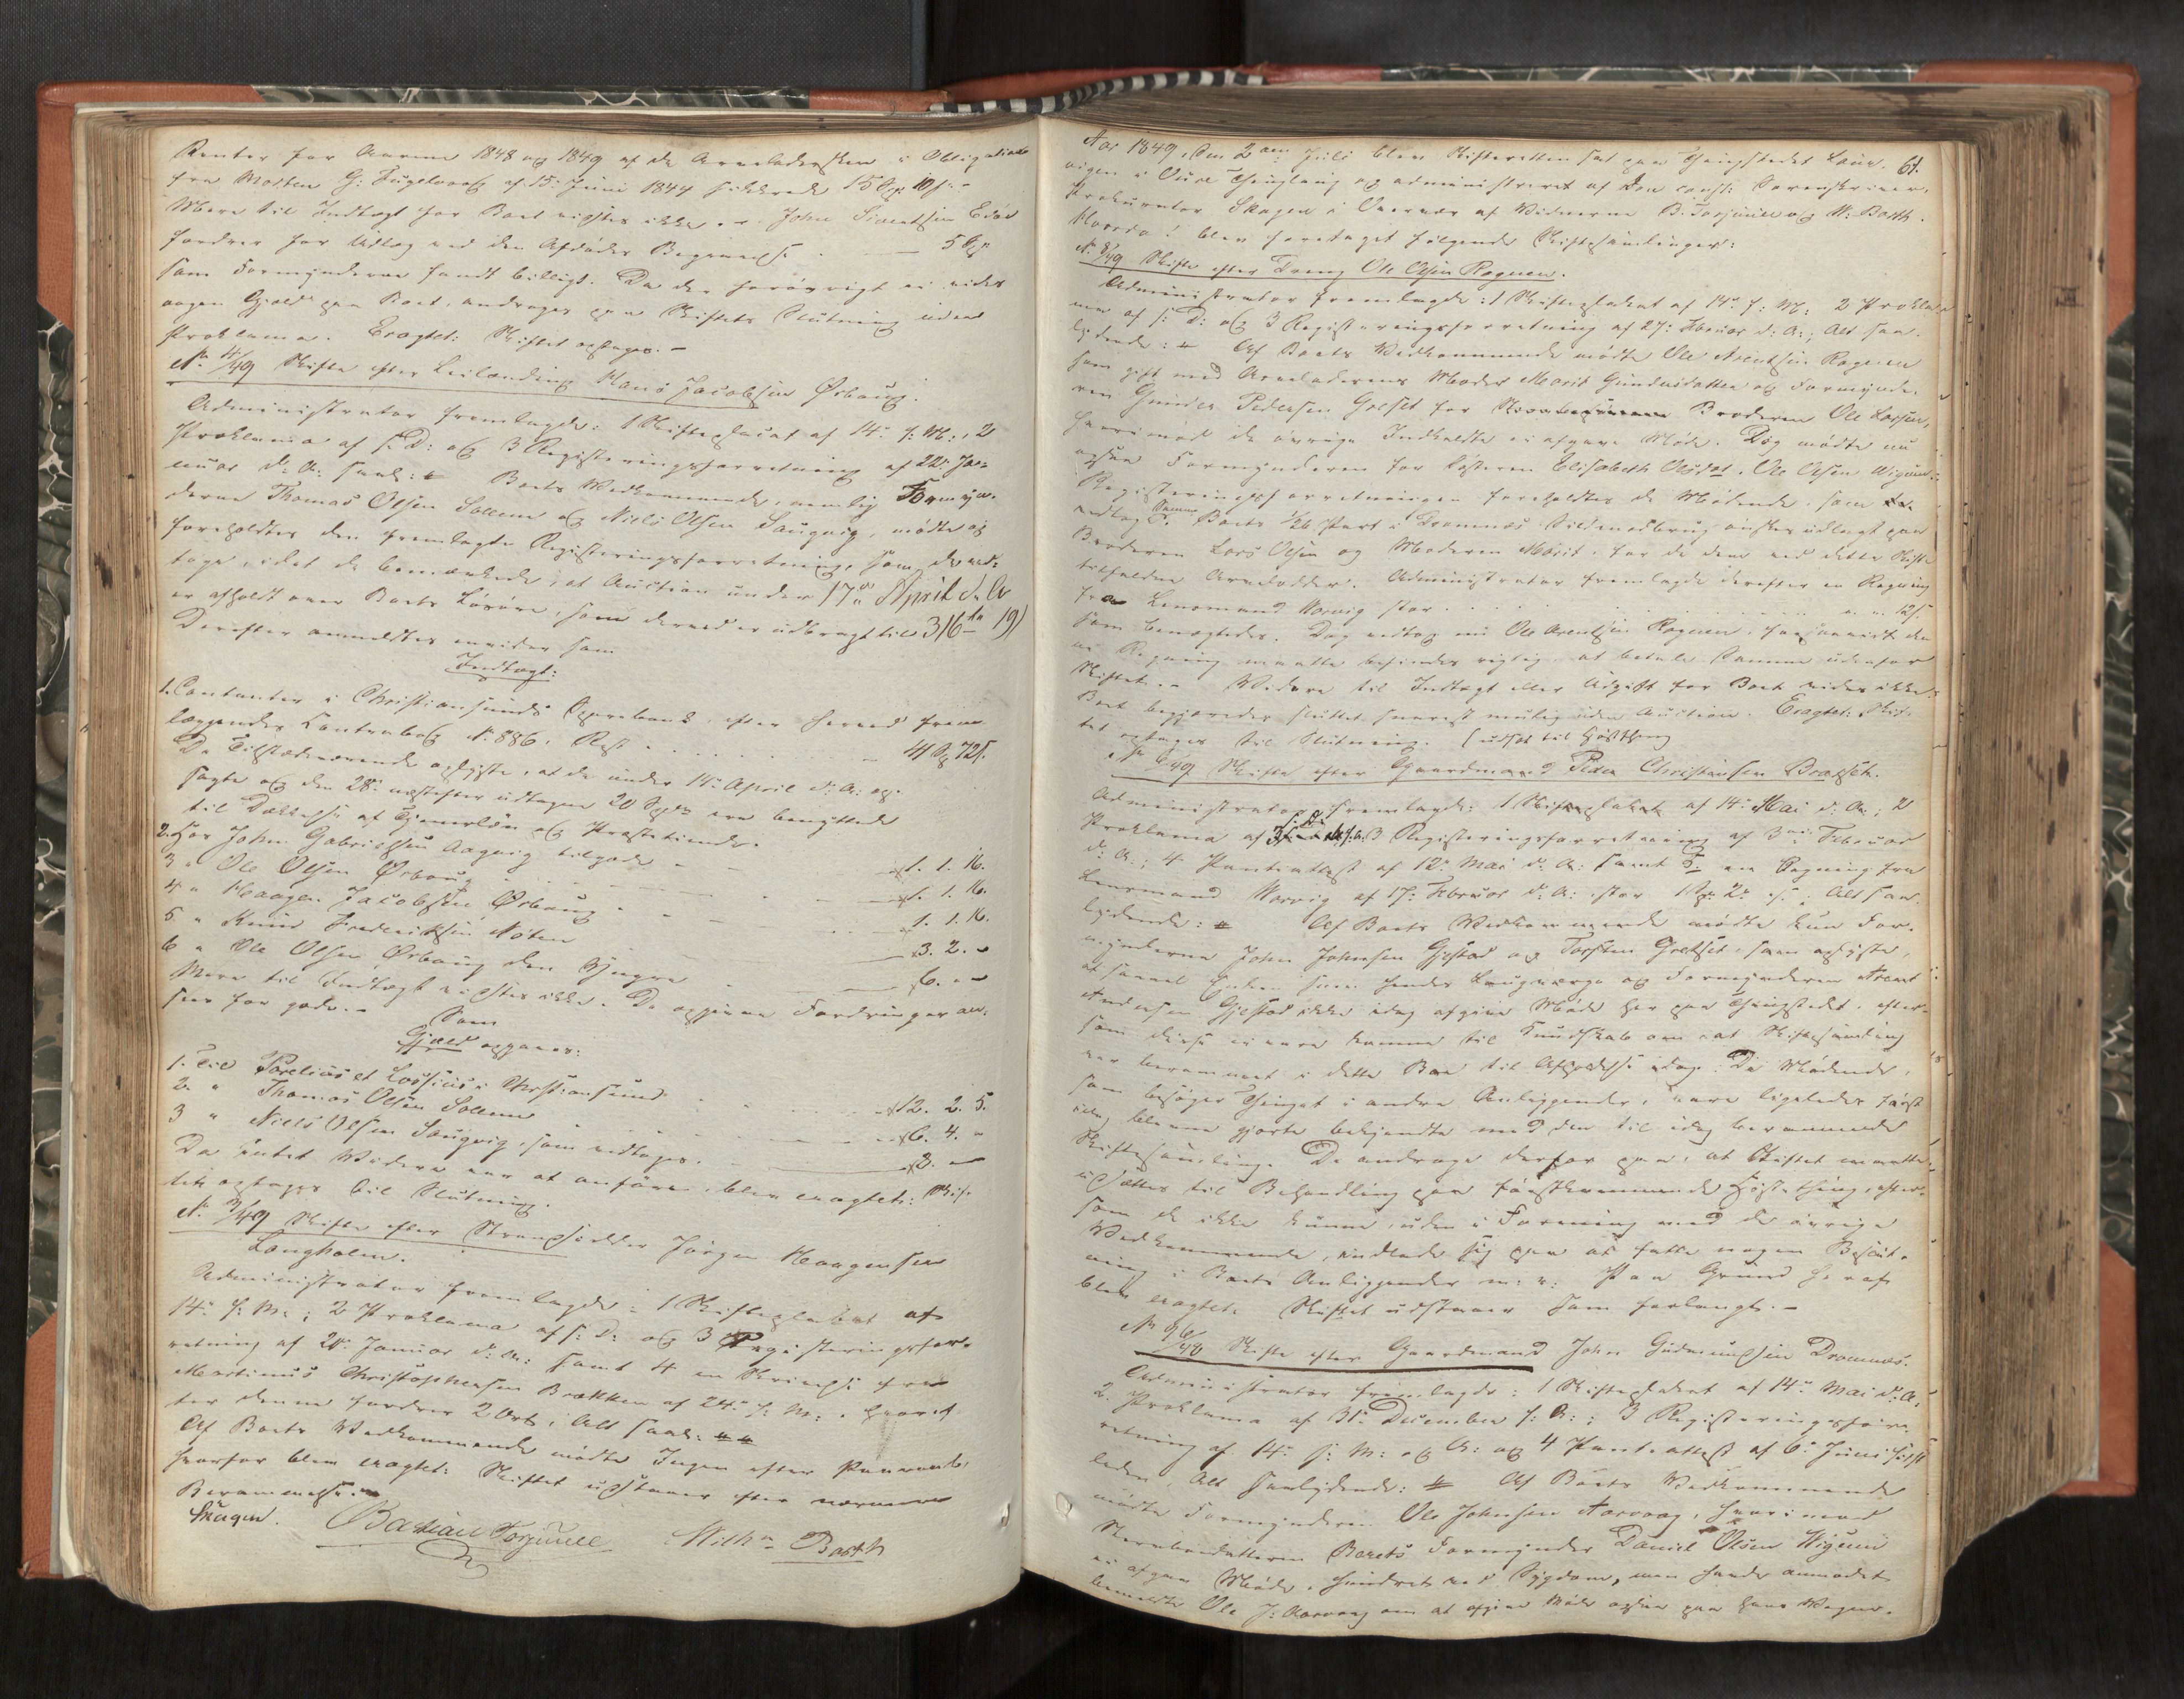 Renter for Aarene 1848 og 1849 af de Arveladersken i Obligation
fra Morten G: Fugelvaag af 15: Juni 1844 sikkrede 15 Sp: 10 s:-
Mere til Indtægt for Boet vidstes ikke. John Sivertsen
fordrer for Udlæg ved den Afdødes Begravelse 5 Sp:
som Formynderne fandt billigt. Da der forøvrigt ei vides
nogen Gjæld paa Boet, androges paa Skiftets Slutning uden
Proklama. Eragtet: Skiftet optages.-
No 4/49 Skifte efter Leilænding Hans Jacobsen Ørbaug.
Administrator fremlagde: 1 Skifteplacat af 14de f: M:, 2
Proklama af s: D: og 3 Registeringsforretning af 22de Ja-
nuar d: A: saal: Boets Vedkommende, nemlig Formyn-
derne Thomas Olsen Solem og Niels Olsen Saugvig, mødte og
foreholdtes den fremlagte Registeringsforretning, som de ved-
toge, idet de bemærkede, at Auction under 17de April d. A
er afholdt over Boets Løsøre, som derved er udbragt til 316
Derefter anmeldtes videre som
Indtægt:
1. Contanter i Christiansunds Sparebank efter herved frem-
læggendes Contrabog No 886. Rest 41 Sp 72 s.
De Tilstædeværende oplyste, at de under 14de April d: A: op-
sagte og den 28de næstefter udtagne 20 Spd ere benyttede
til Dækkelse af Tjenerløn og Præstetiende.
2. Hos John Gabrielsen Aagvig tilgode 1. 1. 16.
3 " Ole Olsen Ørbaug 1. 1. 16.
4 " Haagen Jacobsen Ørbaug 1. 1. 16.
5 " Knud Frederiksen Nøten 3. 2. -
6 " Ole Olsen Ørbaug den Yngre 6. - -
Mere til Indtægt vidstes ikke. De opgivne Fordringer an-
sees for gode.- Som
Gjæld opgaves:
1. Til Parelius et Lossius i Christiansund 12. 2. 5.
2. " Thomas Olsen Solem 6. 4. -
3 " Niels Olsen Saugvig, som vedtoges. 2. -
Da Intet Videre var at anføre, blev eragtet: Skif-
tet optages til Slutning.
No 7/49 Skifte efter Strandsidder Jørgen Haagensen
Langholen.
Administrator fremlagde: 1 Skifteplakat af
14de f: M:; 2 Proklama af s: D: og 3 Registeringsfor-
retning af 20de Januar d: A: samt 4 en Skrivelse fra
Martinus Christophersen Brækken af 24de f: M:, hvoref-
ter denne fordrer 2 Ort, Alt saal:
Af Boets Vedkommende mødte Ingen efter Paaraab,
hvorfor blev eragtet: Skiftet udstaaer efter nærmere
Berammelse.
Skagen. Bastian Torjuul Wilh. Barth

Aar 1849, den 2den Juli blev Skifteretten sat paa Thingstedet Laur- 61.
vigen i Ædre Thinglaug og administreret af den const: Sorenskriver,
Prokurator Skagen i Overvær af Vidnerne B. Torjuul og W. Barth.
Hvorda: blev foretaget følgende Skiftesamlinger:
No 8/49 Skifte efter Dreng Ole Olsen Rognen.
Administrator fremlagde: 1 Skifteplakat af 14de f: M: 2 Prokla-
ma af s: D: og 3 Registeringsforretning af 27: Februar d: A:, Alt saa-
lydende: Af Boets Vedkommende mødte Ole Arentsen Rognen
som gift med Arveladerens Moder Marit Gundersdatter og Formynde-
ren Gunder Pedersen Gresset for Broderen Ole Larsen,
hvorimod de øvrige Indkaldte ei afgave Møde. Dog mødte nu
ogsaa Formynderen for Søsteren Elisabeth Olsdat. Ole Olsen Wigum.
Registeringsforretningen foreholdtes de Mødende, som
vedtog Samme. Boets 1/26 Part i Dromnæs Sildenodbrug ønskes udlagt paa
Broderen Lars Olsen og Moderen Marit, for de dem ved dette Skifte
tilfaldne Arvelodder. Administrator fremlagde derefter en Regning
fra Lensmand Norvig stor 12 s.
som benegtedes. Dog vedtog nu Ole Arentsen Rognen, forsaavidt den-
ne Regning maatte befindes rigtig, at betale Samme udenfor
Skiftet.- Videre til Indtægt eller Udgift for Boet vides ikke.
Boet begjæredes sluttet snarest mulig uden Auction. Eragtet: Skif-
tet optages til Slutning. (udsat til Høstthing
No 6/49 Skifte efter Gaardmand Peder Christensen Bræsset.
Administrator fremlagde: 1 Skifteplakat af 14de Mai d: A:, 2
Proklama af s: D: 3 Registeringsforretning af 3die Februar
d: A:; 4 Panteattest af 12te Mai d: A: samt 5. en Regning fra
Lensmand Norvig af 17: Februar d: A: stor 1 Sp: 2 s; Alt saa-
lydende: Af Boets Vedkommende mødte kun For-
mynderne John Johnsen Gjestad og Torsten Gresset, som oplyste,
at saavel Enken som hendes Laugværge og Formynderen Arent
Andersen Gjestad ikke idag afgive Møde her paa Thingstedet, efter-
som disse ei vare komne til Kundskab om, at Skiftesamling
var berammet i dette Boe til Afholdelse idag. De Mødende,
som besøger Thinget i andre Anliggender, vare ligeledes først
idag blevne gjorte bekjendte med den til idag berammede
Skiftesamling. De androge derfor paa, at Skiftet maatte
udsættes til Behandling paa førstkommende Høstething, efter-
som de ikke kunne, uden i Forening med de øvrige
Vedkommende, indlade sig paa at fatte nogen Beslut-
ning i Boets Anliggender m: v: Paa Grund heraf
blev eragtet: Skiftet udstaaer som forlangt.-
No 96/48 Skifte efter Gaardmand John Gudmundsen Dromnæs.
Administrator fremlagde: 1 Skifteplakat af 14de Mai d: A:
2. Proklama af 31te December f: A:; 3 Registeringsfor-
retning af 14de s: M: og A: og 4 Panteattest af 6te Juni sidst-
leden, Alt saalydende: Af Boets Vedkommende
mødte Formynderen Ole Johnsen Aarvaag, hvorimod
Steenbordatteren Berets Formynder Daniel Olsen Wigum
ei afgav Møde, hindret ved Sygdom, men havde anmodet
bemeldte Ole J: Aarvaag om at afgive Møde ogsaa paa hans Vegne.